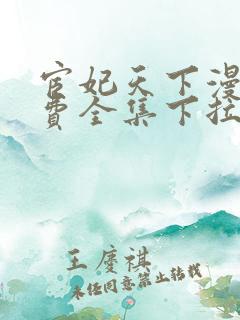 宦妃天下漫
费全集下拉
王慶祺
未经同意禁止转载